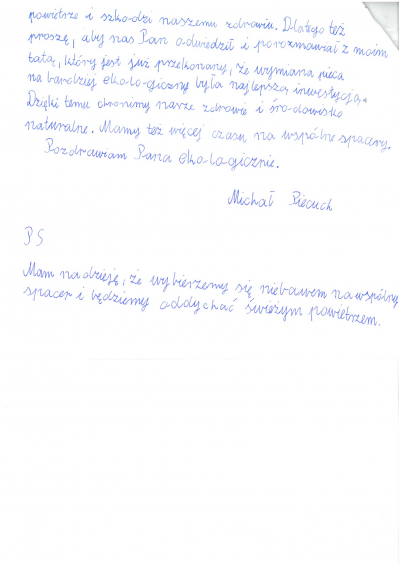 powietrze i szkodzi naszemu zdrowiu. Dlatego też
proszę, aby nas Pan odwiedził i porozmawiał z moim
tatą, który jest już przekonany, że wymiana pieca
na bardziej ekologiczny była najlepszą inwestycją.
Dzięki temu chronimy nasze zdrowie i środowisko
naturalne. Mamy też więcej czasu na wspólne spacery.
Pozdrawiam Pana ekologicznie.
Michał Piecuch
PS
Mam nadzieję, że wybierzemy się niebawem na wspólny
spacer i będziemy oddychać świeżym powietrzem.